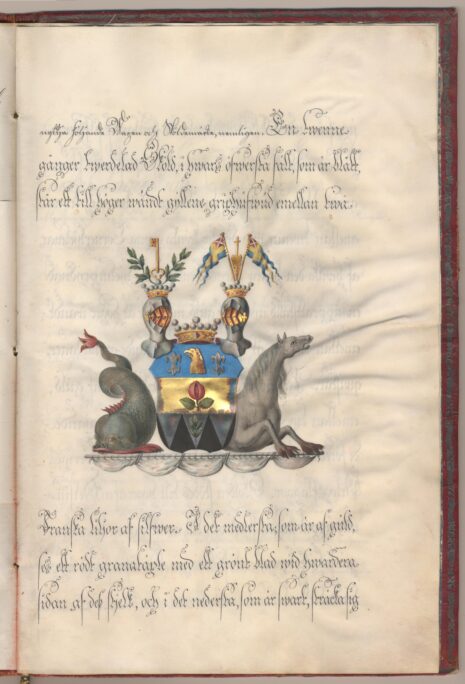 nyttja följande Wapen och Sköldemärke, nemligen. En twenne
gånger twerdelad Sköld, i hwars öfwersta fält, som är blått,
står ett till höger wändt gyllene griphufwud emellan twå
Franska liljor af silfwer. I det medlersta, som är af guld,
ses ett rödt granatäple med ett grönt blad wid hwardera
sidan af des stjelk, och i det nedersta, som är swart, sträcka sig